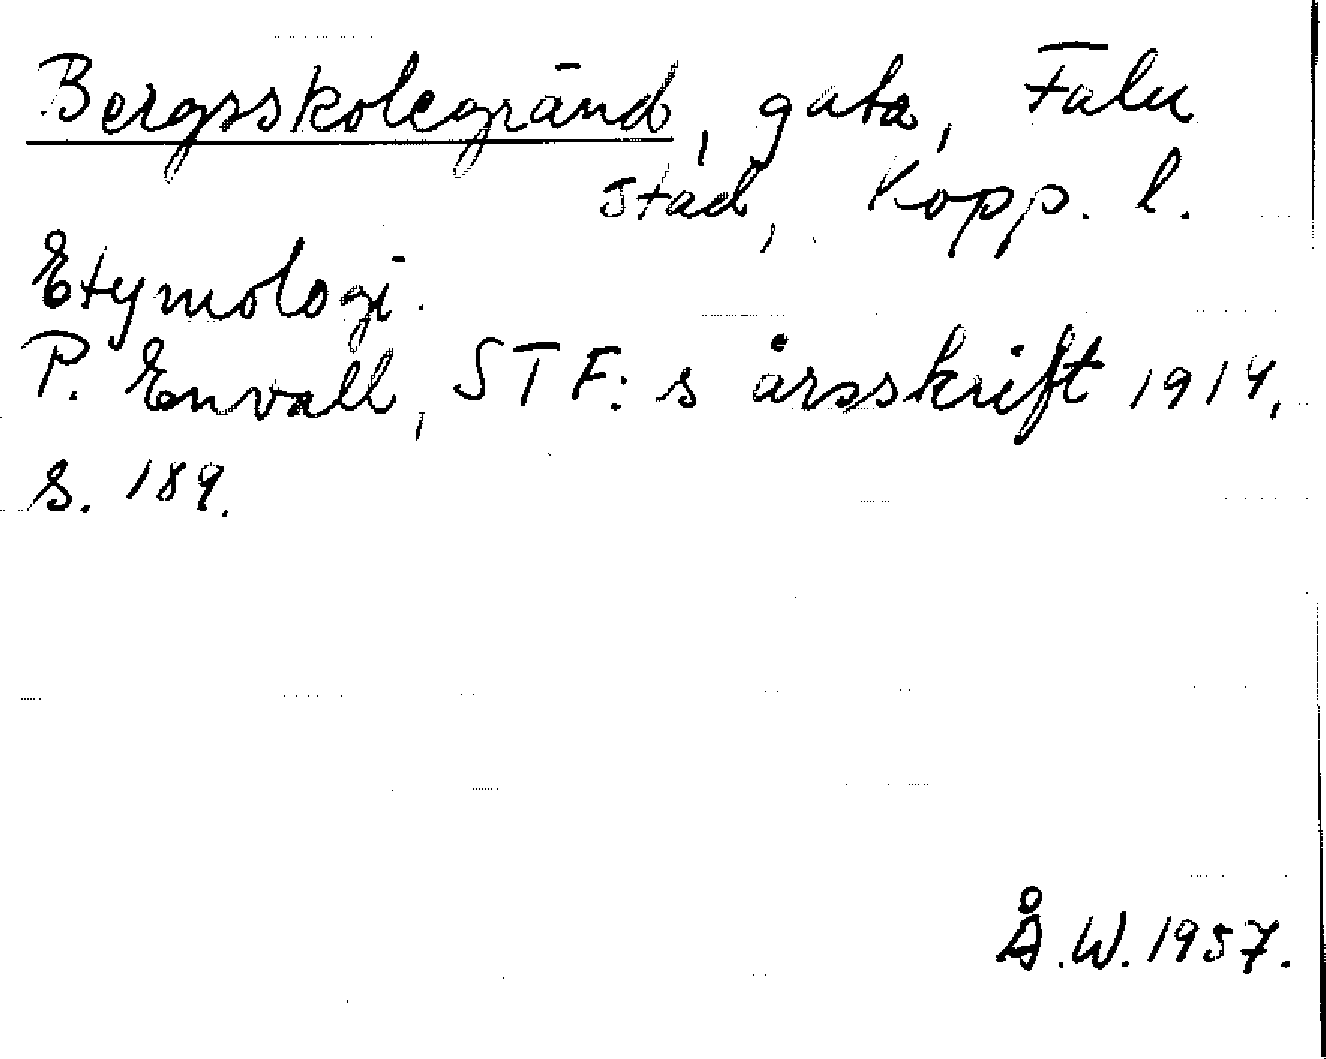 Bergsskolegränd, gata, Falu
stad, Kopp. l.
Etymologi.
P. Envall, STF:s årsskrift 1914,
s. 189.
Å.W. 1957.